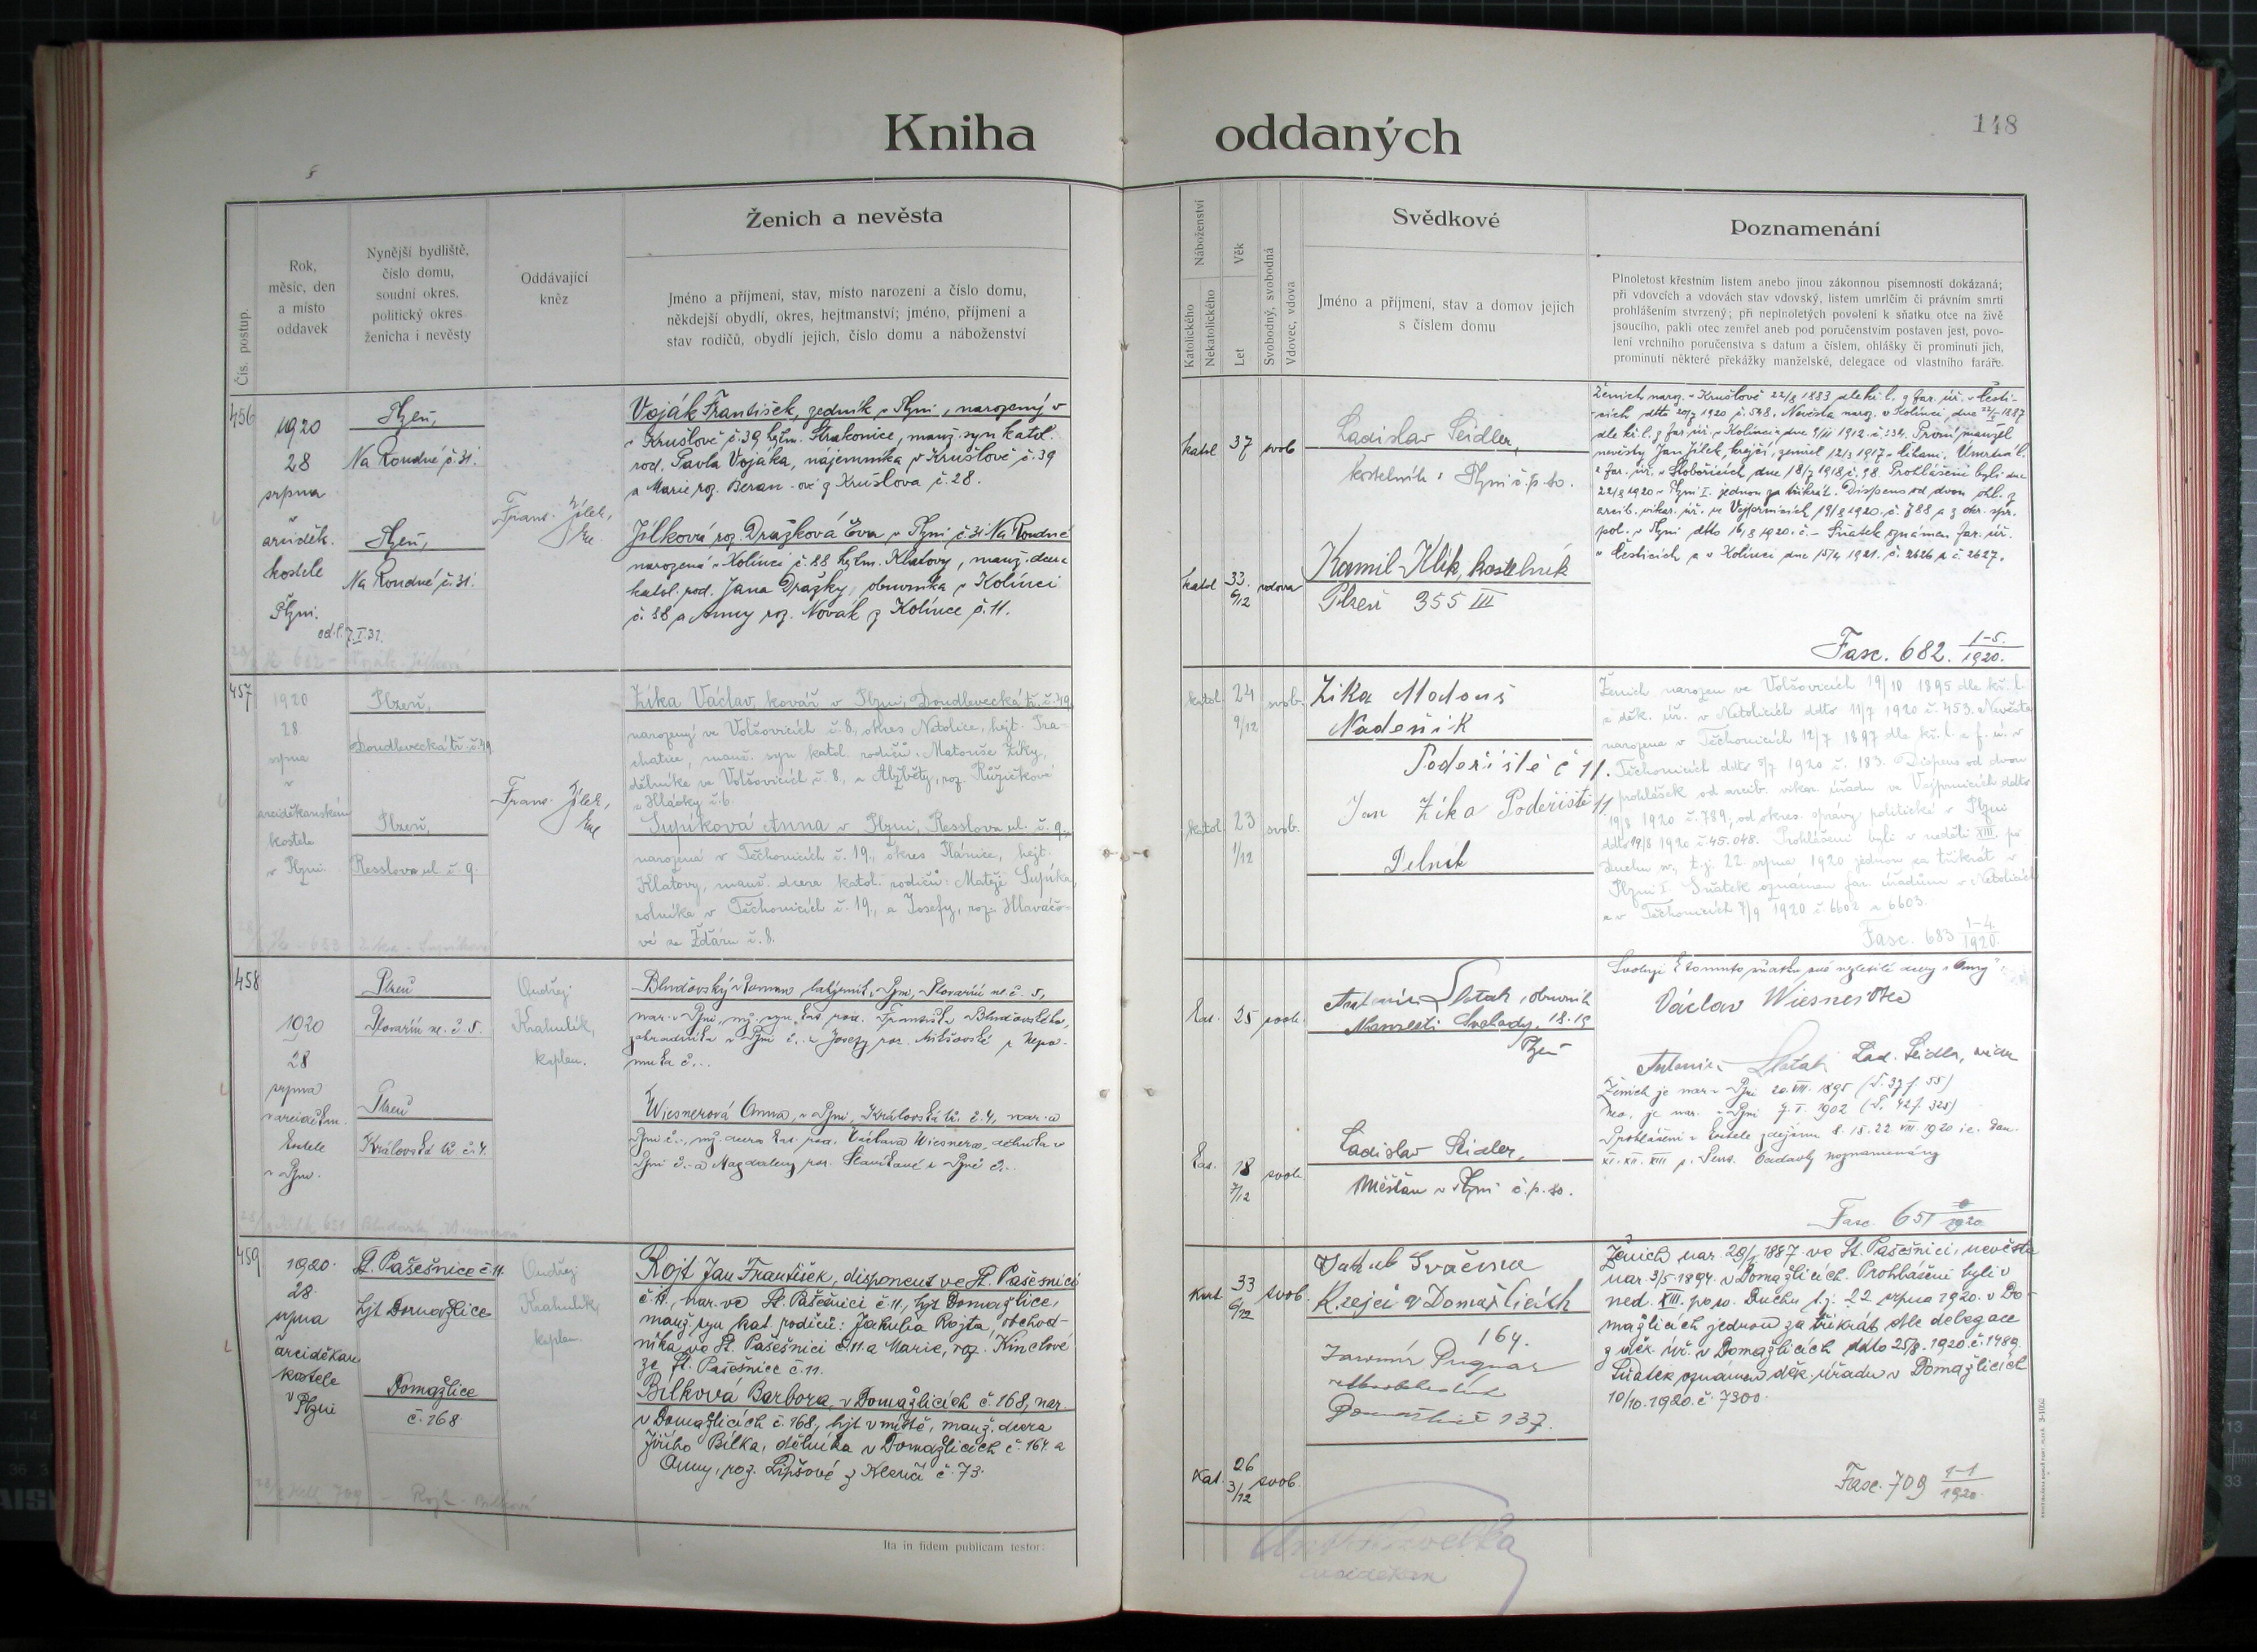 Kniha oddaných
148
Čís. postup.
Rok,
měsíc, den
a místo
oddavek
Nynější bydliště,
číslo domu,
soudní okres,
politický okres
ženicha i nevěsty
Oddávající
kněz
Ženich a nevěsta
Jméno a příjmení, stav, místo narození a číslo domu,
někdejší obydlí, okres, hejtmanství; jméno, příjmení a
stav rodičů, obydlí jejich, číslo domu a náboženství
Náboženství
Katolického
Nekatolického
Věk
Let
Svobodný, svobodná
Vdovec, vdova
Svědkové
Jméno a příjmení, stav a domov jejich
s číslem domu
Poznamenání
Plnoletost křestním listem anebo jinou zákonnou písemností dokázaná;
při vdovcích a vdovách stav vdovský, listem umrlčím či právním smrti
prohlášením stvrzený; při neplnoletých povolení k sňatku otce na živě
jsoucího, pakli otec zemřel aneb pod poručenstvím postaven jest, povo-
lení vrchního poručenstva s datum a číslem, ohlášky či prominutí jich,
prominutí některé překážky manželské, delegace od vlastního faráře.
456
1920
28
srpna
v
arciděk.
kostele
Plzni.
Plzeň,
Na Roudné č. 31.
Plzeň,
Na Roudné č. 31.
od.l. 7.I.31.
Frant. Jílek,
Voják František, zedník v Plzni, narozený v
v Krušlově č. 39 hejtm. Strakonice, manž. syn katol.
rod. Pavla Vojáka, nájemníka v Krušlově č. 39
a Marie roz. Beran-ové z Krušlova č. 28.
Jílková roz. Drážková Eva v Plzni č. 31 Na Roudné
narozená v Kolínci č. 88 hejtm. Klatovy, manž. dcera
katol. rod. Jana Drážky, obuvníka v Kolínci
č. 88 a Anny roz. Novák z Kolínce č. 11.
katol 37 svob
katol 33 6/12 vdova
Ladislav Seidler,
kostelník v Plzni č.p. 80.
Kamil Klik, kostelník
Plzeň 355 III
Ženich naroz. v Krušlově 22/8 1883 dle kř. l. z far. úř. v Česti-
cích ddto 20/7 1920 č. 548. Nevěsta naroz. v Kolínci dne 22/2 1887
dle kř. l. z far. úř. v Kolínci dne 9/11 1912 č. 534. První manžel
nevěsty Jan Jílek, krejčí, zemřel 12/3 1917 v Libani. Úmrtní l.
z far. úř. v Slobořicích, dne 18/7 1918 č. 98. Prohlášeni byli dne
22/8 1920 v Plzni I. jednou za třikrát. Dispens od dvou ohl. z
arcib. vikar. úř. ve Vejprnicích 19/8 1920 č. 788 a z okr. spr.
pol. v Plzni ddto 16/8 1920. č. – Sňatek oznámen far. úř.
v Česticích a v Kolínci dne 15/4 1921. č. 2626 a č. 2627.
Fasc. 682. 1-5./1920.
457
1920
28
srpna
v
arciděkanském
kostele
v Plzni.
Plzeň,
Doudlevecká tř. č. 49
Plzeň,
Resslova ul. č. 9.
Frant. Jílek,
Zíka Václav, kovář v Plzni, Doudlevecká tř. č. 49,
narozený ve Volšovicích č. 8, okres Netolice, hejt. Pra-
chatice, manž. syn katol. rodičů: Matouše Zíky,
dělníka ve Volšovicích č. 8, a Alžběty, roz. Růžičkové
z Hlásky č. 6.
Šupíková Anna v Plzni, Resslova ul. č. 9.,
narozená v Těchonicích č. 19, okres Plánice, hejt.
Klatovy, manž. dcera katol. rodičů: Matěje Šupíka,
rolníka v Těchonicích č. 19, a Josefy, roz. Hlaváčo-
vé ze Žďáru č. 8.
katol. 24 9/12 svob.
katol. 23 1/12 svob.
Zika Matouš
Nadeník
Podeřiště č 11.
Jan Zíka Podeřiště 11
Delník
Ženich narozen ve Volšovicích 19/10 1895 dle kř. l.
z děk. úř. v Netolicích ddto 11/7 1920 č. 453. Nevěsta
narozena v Těchonicích 12/7 1897 dle kř. l. z f. ú. v
Těchonicích ddto 5/7 1920 č. 183. Dispens od dvou
prohlášek od arcib. vikar. úřadu ve Vejprnicích ddto
19/8 1920 č. 789, od okres. správy politické v Plzni
ddto 19/8 1920 č. 45.048. Prohlášeni byli v neděli XIII. po
Duchu sv., t.j. 22. srpna 1920 jednou za třikrát v
Plzni I. Sňatek oznámen far. úřadům v Netolicích
a v Těchonicích 9/9 1920 č. 6602 a 6603.
Fasc. 683 1-4./1920.
458
1920
28
srpna
v arciděkan.
kostele
v Plzni.
Plzeň
Plzeň
Královská tř. č. 4.
Ondřej
Krahulík,
kaplan.
Wiesnerová Anna, v Plzni, Královská tř. č. 4, nar. v
Plzni č.-, mž. dcera kat. rod. Václava Wiesnera, dělníka v
kat. 25 svob.
kat. 18 7/12 svob.
obuvník
Náměstí Svobody. 18.19
Plzeň
Ladislav Seidler,
Měšťan v Plzni č.p. 80.
Svoluji k tomuto sňatku své nezletilé dcery "Anny":
Václav Wiesner otec
Lad. Seidler, svědek
Ženich je nar. v Plzni 20. VII. 1895 (T. 37 f. 55)
Nev. je nar. v Plzni 7. I. 1902 (T. 42 f. 325)
Prohlášeni v kostele zdejším 8. 15. 22. VIII. 1920
Fasc. 651
459
1920.
28.
srpna
arciděkan.
kostele
v Plzni
St. Pašešnice č. 11.
hjt Domažlice
Domažlice
č. 168.
Ondřej
Krahulík,
kaplan.
Rojt Jan František, disponent ve St. Pašešnici
č. 11., nar. ve St. Pašešnici č. 11, hjt Domažlice,
manž. syn kat. rodičů: Jakuba Rojta, obchod-
níka ve St. Pašešnici č. 11. a Marie, roz. Kinclové
ze St. Pašešnice č. 11.
Bílková Barbora, v Domažlicích č. 168, nar.
v Domažlicích č. 168, hjt v místě, manž. dcera
Jiřího Bílka, dělníka v Domažlicích č. 164. a
Anny, roz. Lipšové z Klenčí č. 73.
Kat. 33 6/12 svob.
Kat. 26 3/12 svob.
Jakub Svačina
Krejčí v Domažlicích
164.
Domažlice 137.
Ženich nar. 29/1 1887. ve St. Pašešnici, nevěsta
nar. 3/5 1894. v Domažlicích. Prohlášeni byli v
ned. XIII. po sv. Duchu t.j. 22 srpna 1920. v Do-
mažlicích jednou za třikrát dle delegace
z děk. úř. v Domažlicích ddto 25/8. 1920. č. 1489.
Sňatek oznámen děk. úřadu v Domažlicích
10/10. 1920. č. 7300.
Fasc. 709 1-1/1920.
Ita in fidem publicam testor:
arciděkan